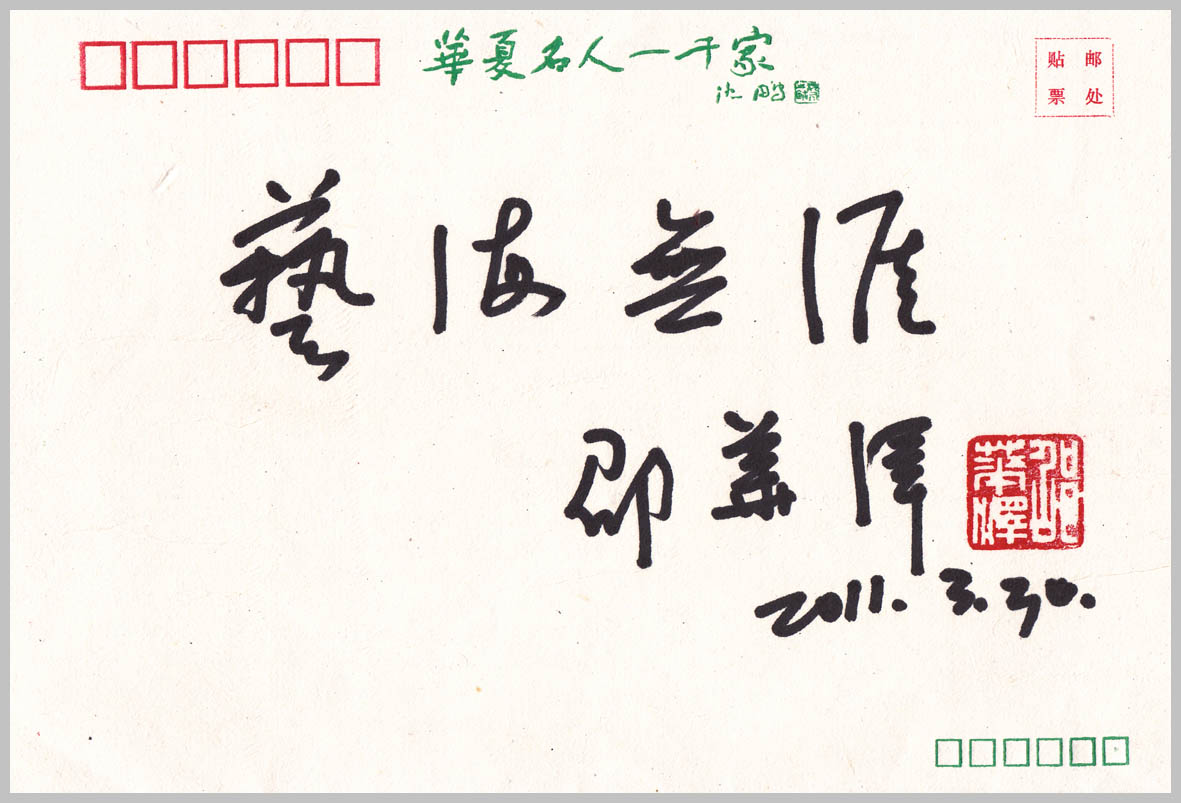 華夏名人一千家
沈鹏
贴邮
票处
藝海無涯
邵華澤
邵華澤
2011.3.30.